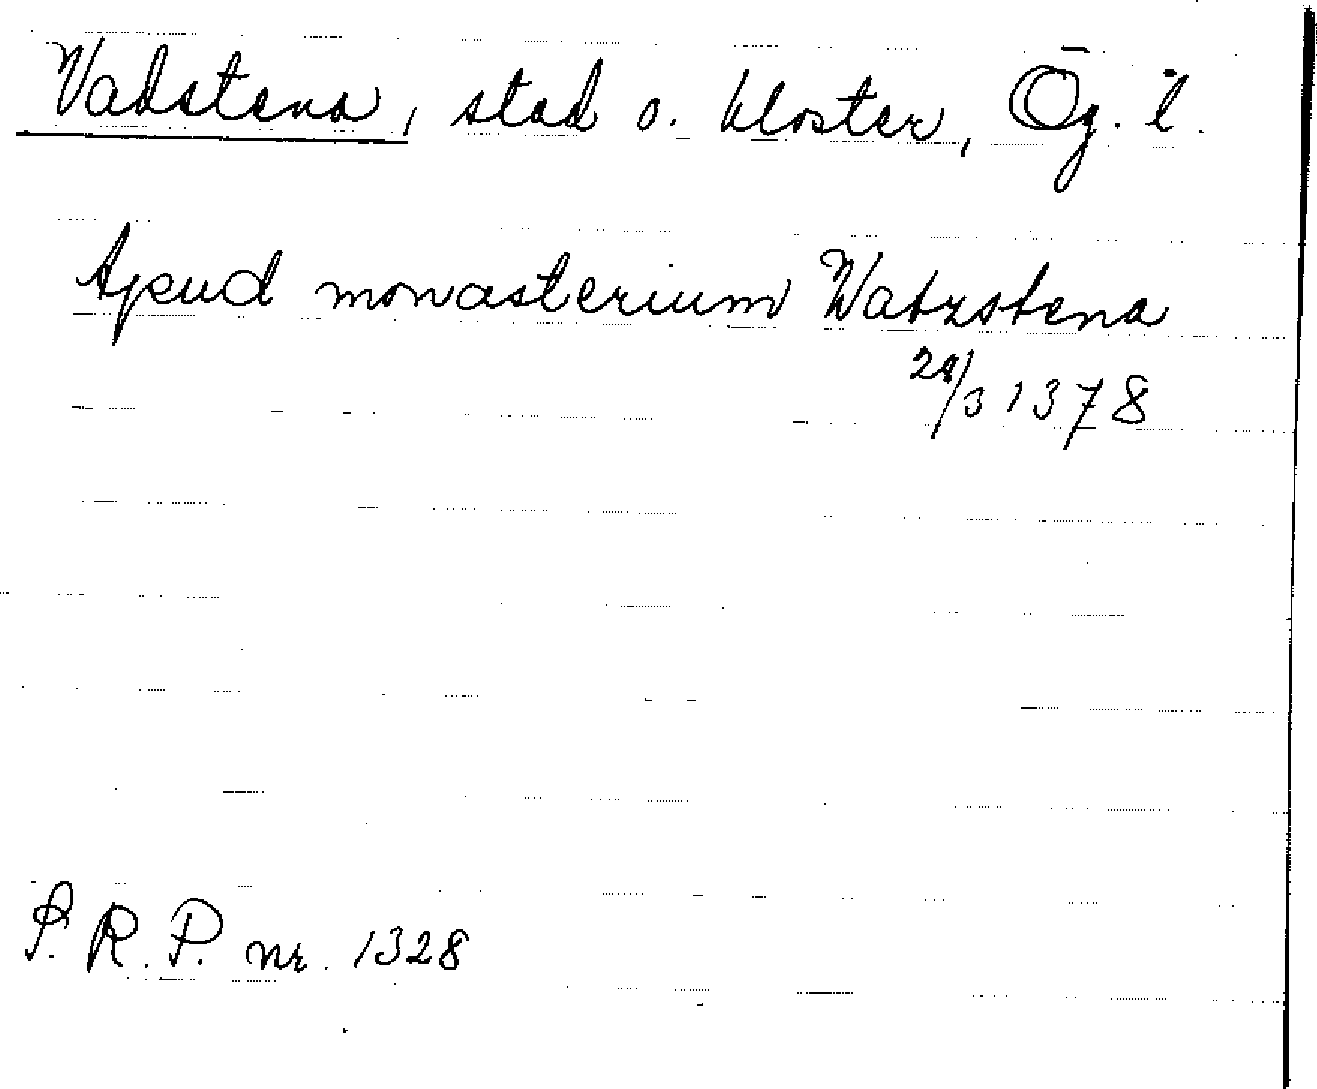 Vadstena, stad o. kloster, Ög. l.
Apud monasterium Watzstena
28/3 1378
S. R. P. nr. 1328